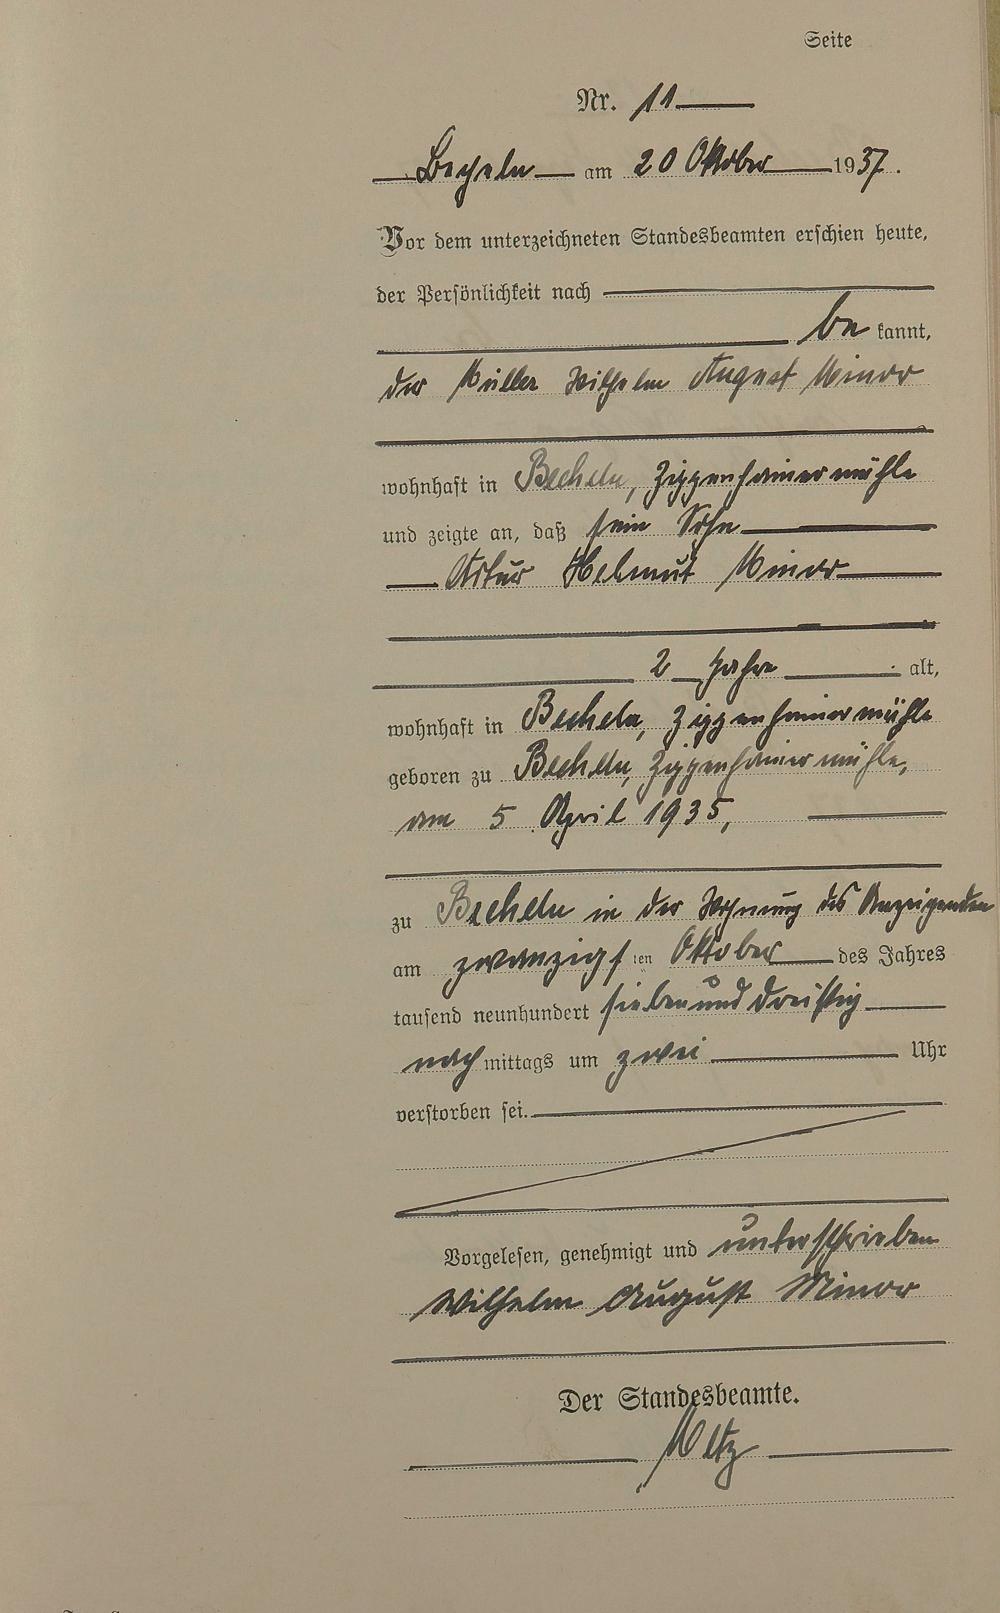 Seite
Nr. 11
Becheln am 20 Oktober 1937.
Vor dem unterzeichneten Standesbeamten erschien heute,
der Persönlichkeit nach
be kannt,
der Müller Wilhelm August Minor
wohnhaft in Becheln, Zippenhainermühle
und zeigte an, daß sein Sohn
Artur Helmut Minor
2 Jahre alt,
wohnhaft in Becheln, Zippenhainermühle
geboren zu Becheln, Zippenhainermühle,
am 5 April 1935,
zu Becheln in der Wohnung des Anzeigenden
am zwanzigs ten Oktober des Jahres
tausend neunhundert siebenunddreißig
nach mittags um zwei Uhr
verstorben sei.
Vorgelesen, genehmigt und unterschrieben
Wilhelm August Minor
Der Standesbeamte.